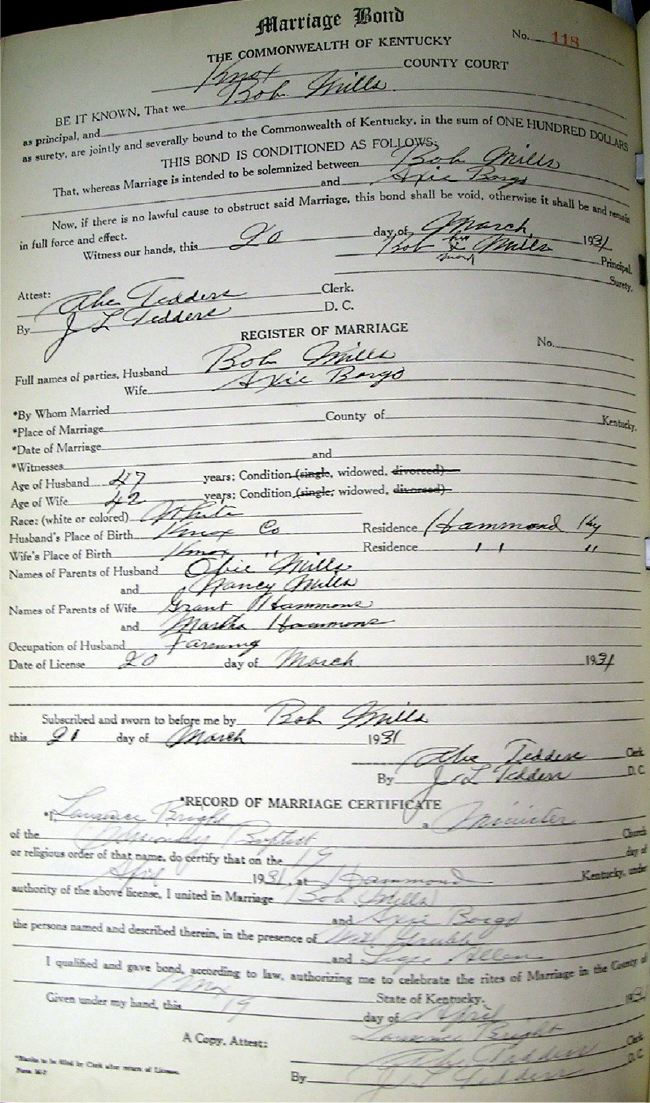 Marriage Bond
No. 118
THE COMMONWEALTH OF KENTUCKY
Knox COUNTY COURT
BE IT KNOWN, That we Bob Mills
as principal, and
as surety, are jointly and severally bound to the Commonwealth of Kentucky, in the sum of ONE HUNDRED DOLLARS
THIS BOND IS CONDITIONED AS FOLLOWS:
That, whereas Marriage is intended to be solemnized between Bob Mills
and Axie Borgo
Now, if there is no lawful cause to obstruct said Marriage, this bond shall be void, otherwise it shall be and remain
in full force and effect.
Witness our hands, this 20 day of March, 1931
Bob Mills Principal.
Surety.
Attest: Abe Tedders Clerk.
By J L Tedders D. C.
REGISTER OF MARRIAGE
No.
Full names of parties, Husband Bob Mills
Wife Axie Borgo
*By Whom Married
*Place of Marriage County of Kentucky.
*Date of Marriage
*Witnesses and
Age of Husband 47 years; Condition (single, widowed, divorced)
Age of Wife 42 years; Condition (single, widowed, divorced)
Race: (white or colored) White
Husband's Place of Birth Knox Co Residence Hammond Ky
Wife's Place of Birth Knox " Residence " " "
Names of Parents of Husband Obie Mills
and Nancy Mills
Names of Parents of Wife Grant Hammons
and Martha Hammons
Occupation of Husband Farming
Date of License 20 day of March 1931
Subscribed and sworn to before me by Bob Mills
this 20 day of March 1931
Abe Tedders Clerk.
By J L Tedders D. C.
*RECORD OF MARRIAGE CERTIFICATE
*I, Laurance Bright a Minister
of the Missionary Baptist Church
or religious order of that name, do certify that on the 19 day of
April 1931, at Hammond Kentucky, under
authority of the above license, I united in Marriage Bob Mills
and Axie Borgo
the persons named and described therein, in the presence of Grubb
and Allen
I qualified and gave bond, according to law, authorizing me to celebrate the rites of Marriage in the County of
Knox State of Kentucky.
Given under my hand, this 19 day of April 1931
Laurance Bright
A Copy, Attest: Abe Tedders Clerk
By J L Tedders D. C.
*Blanks to be filled by Clerk after return of License.